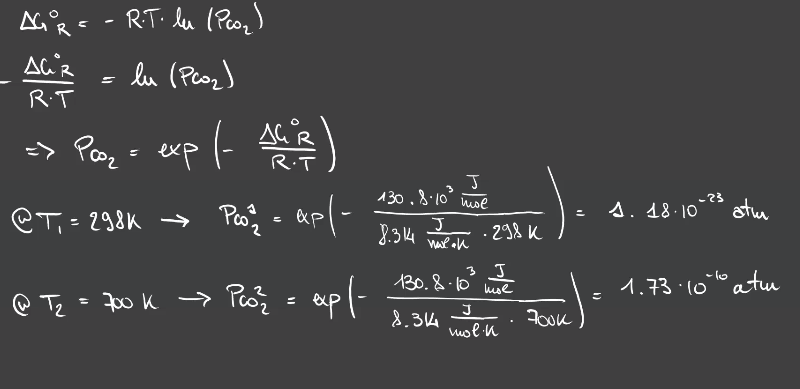 ΔG°R = - R·T· ln (PCO₂)
- ΔG°R / R·T = ln (PCO₂)
=> PCO₂ = exp (- ΔG°R / R·T)
@ T₁ = 298K → PCO₂¹ = exp (- 130.8·10³ J/mol / 8.314 J/mol·K · 298 K) = 1.18·10⁻²³ atm
@ T₂ = 700 K → PCO₂² = exp (- 130.8·10³ J/mol / 8.314 J/mol·K · 700K) = 1.73·10⁻¹⁰ atm